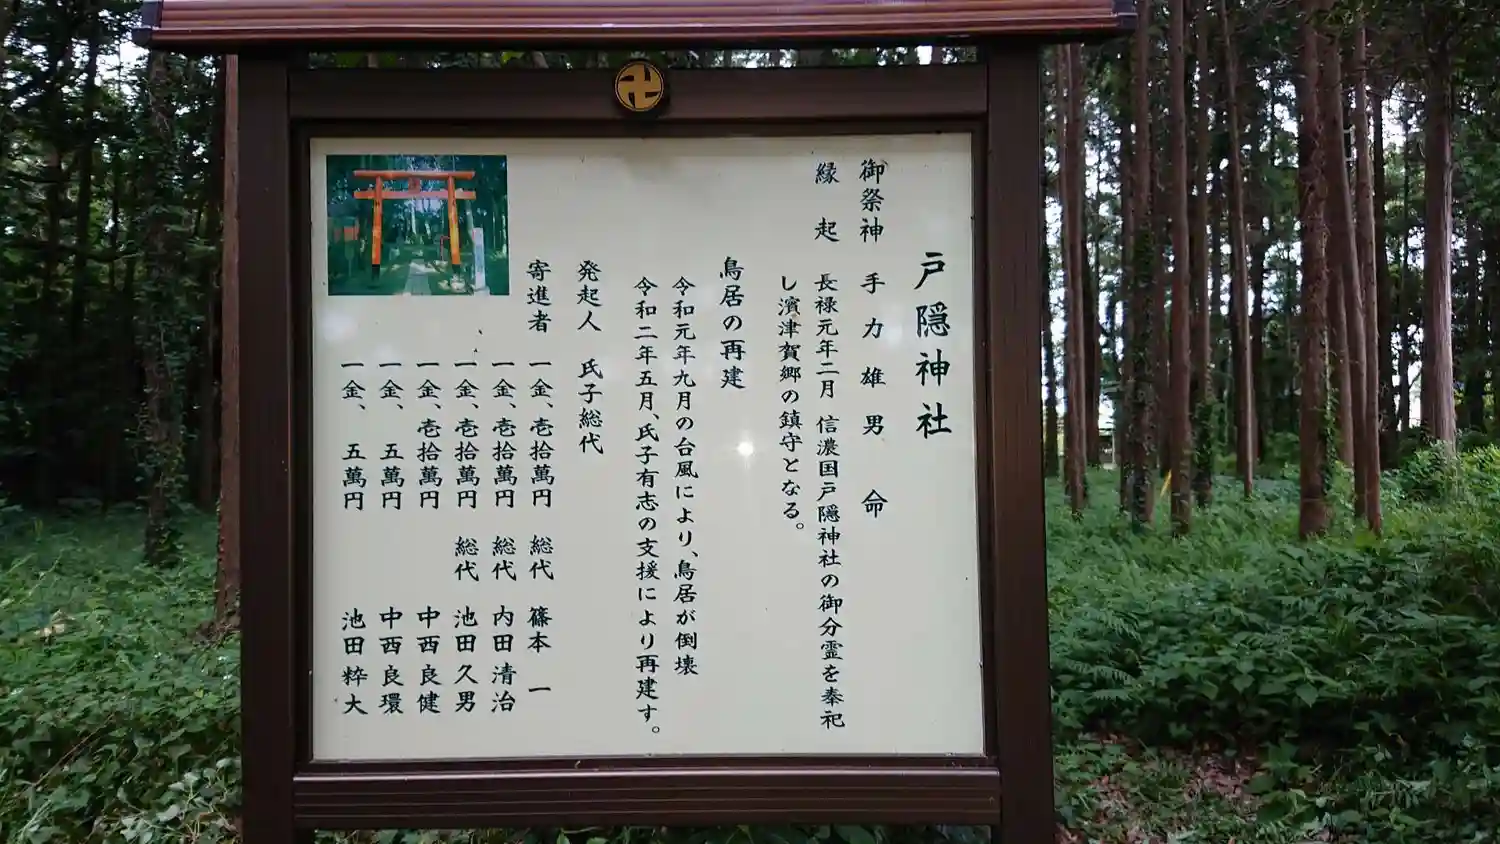 戸隠神社
御祭神 手力雄男命
縁起 長禄元年二月 信濃国戸隠神社の御分霊を奉祀
し濱津賀郷の鎮守となる。
鳥居の再建
令和元年九月の台風により、鳥居が倒壊
令和二年五月、氏子有志の支援により再建す。
発起人 氏子総代
寄進者 一金、壱拾萬円 総代 篠本 一
一金、壱拾萬円 総代 内田清治
一金、壱拾萬円 総代 池田久男
一金、壱拾萬円 中西良健
一金、五萬円 中西良環
一金、五萬円 池田粋大